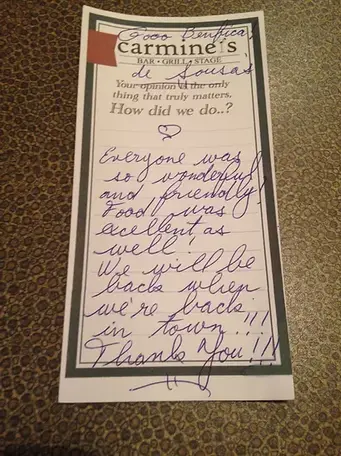 Gooo Benfica!
Carmine's
BAR • GRILL • STAGE
de Sousas
Your opinion is the only
thing that truly matters.
How did we do..?
Everyone was
so wonderful
and friendly!
Food was
excellent as
well!
We will be
back when
we're back
in town!!!
Thanks You!!!